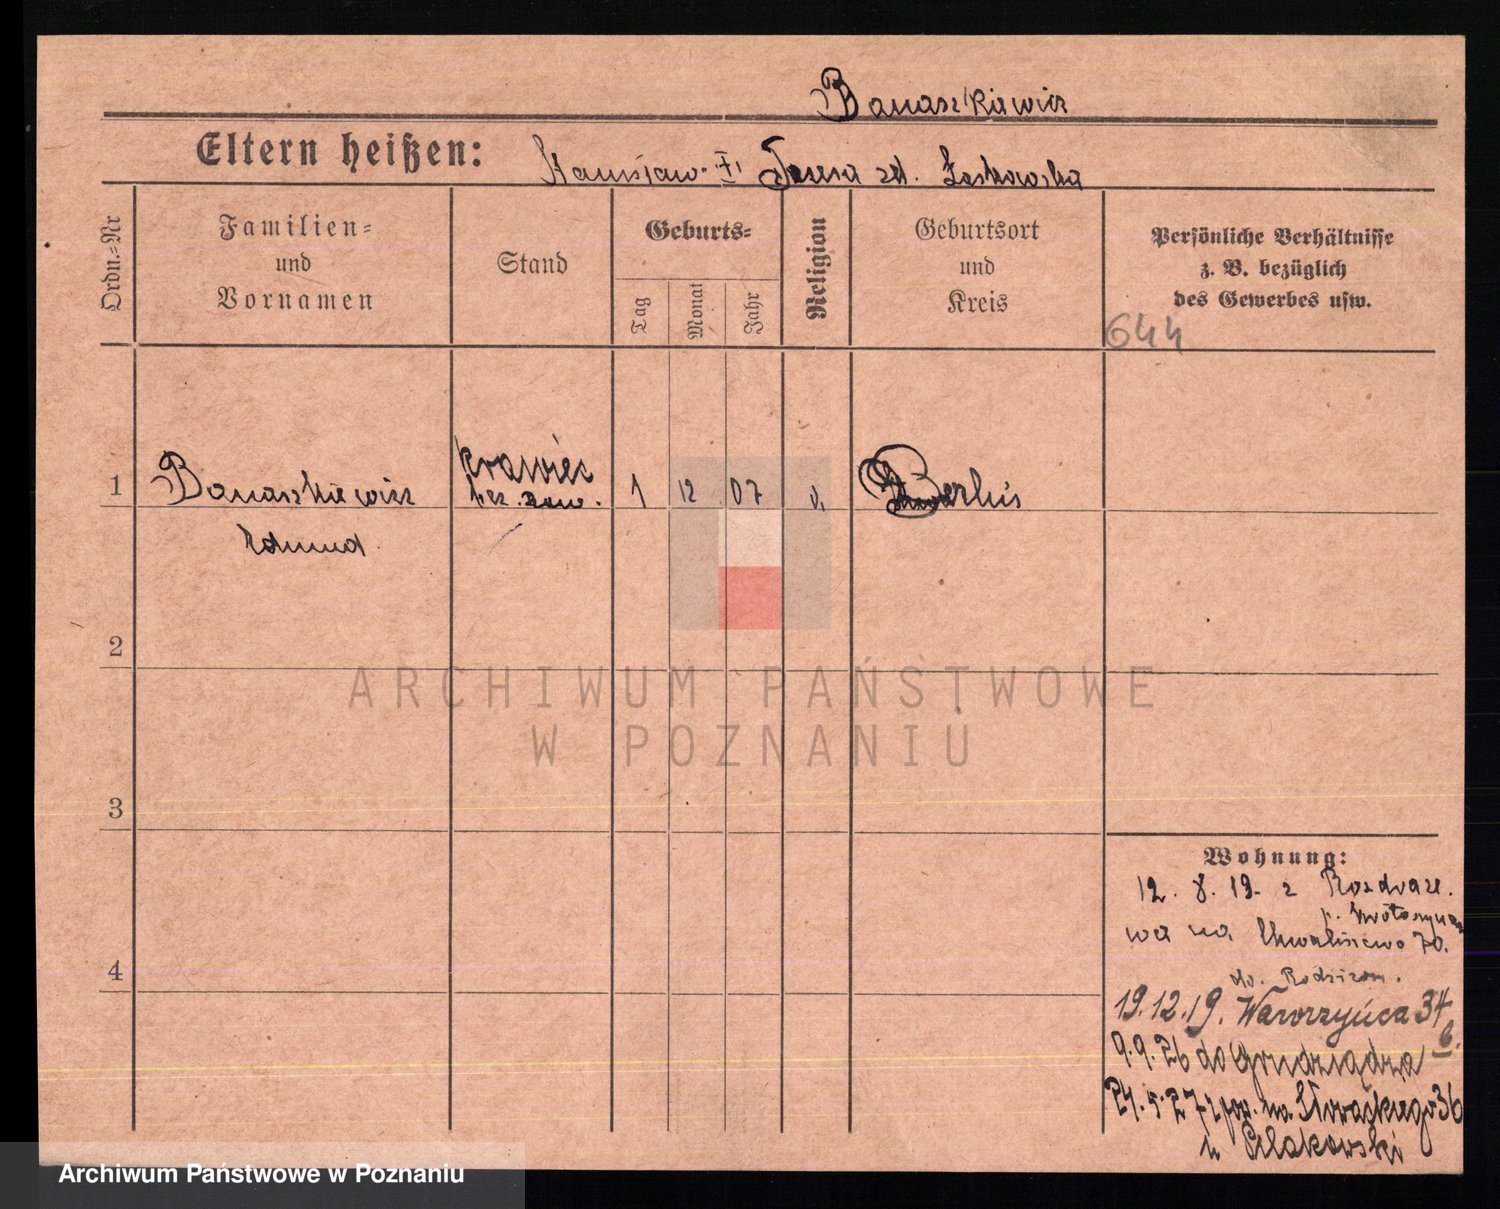 Banaszkiewicz
Eltern heißen: Stanisław Teresa zd.
Ordn.-Nr
Familien-
und
Vornamen
Stand
Geburts-
Tag
Monat
Jahr
Religion
Geburtsort
und
Kreis
Persönliche Verhältnisse
z. B. bezüglich
des Gewerbes usw.
644
1 Banaszkiewicz krawiec 1 12 07 Berlin
Edmund
2
3
4
ARCHIWUM PAŃSTWOWE
W POZNANIU
Wohnung:
12. 8. 19. z
wa na 70.
do Rodziców.
19.12.19. Wawrzyńca 34
9.9.26 do Grudziądza
24.5.27 z na Słowackiego 36
Archiwum Państwowe w Poznaniu